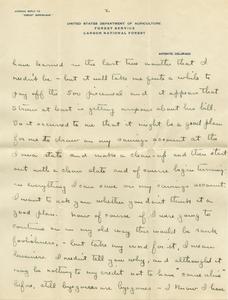 ADDRESS REPLY TO
"FOREST SUPERVISOR"
2.
UNITED STATES DEPARTMENT OF AGRICULTURE
FOREST SERVICE
CARSON NATIONAL FOREST
ANTONITO, COLORADO
have learned in the last two months that I
needn't be - but it will take me quite a while to
pay off the 500 pieced and it appears that
Straw at least is getting anxious about his bill.
So it occurred to me that it might be a good plan
for me to draw on my savings account at the
Iowa state and make a clean-up and then start
out with a clean slate and of course begin turning
in everything I can save on my savings account.
I want to ask you whether you don't think it a
good plan. Now of course if I were going to
continue on in my old way this would be rank
foolishness, - but take my word for it, I mean
business. I needn't tell you why, and although it
may be nothing to my credit not to have "come alive"
before, still bygones are bygones - I know I have